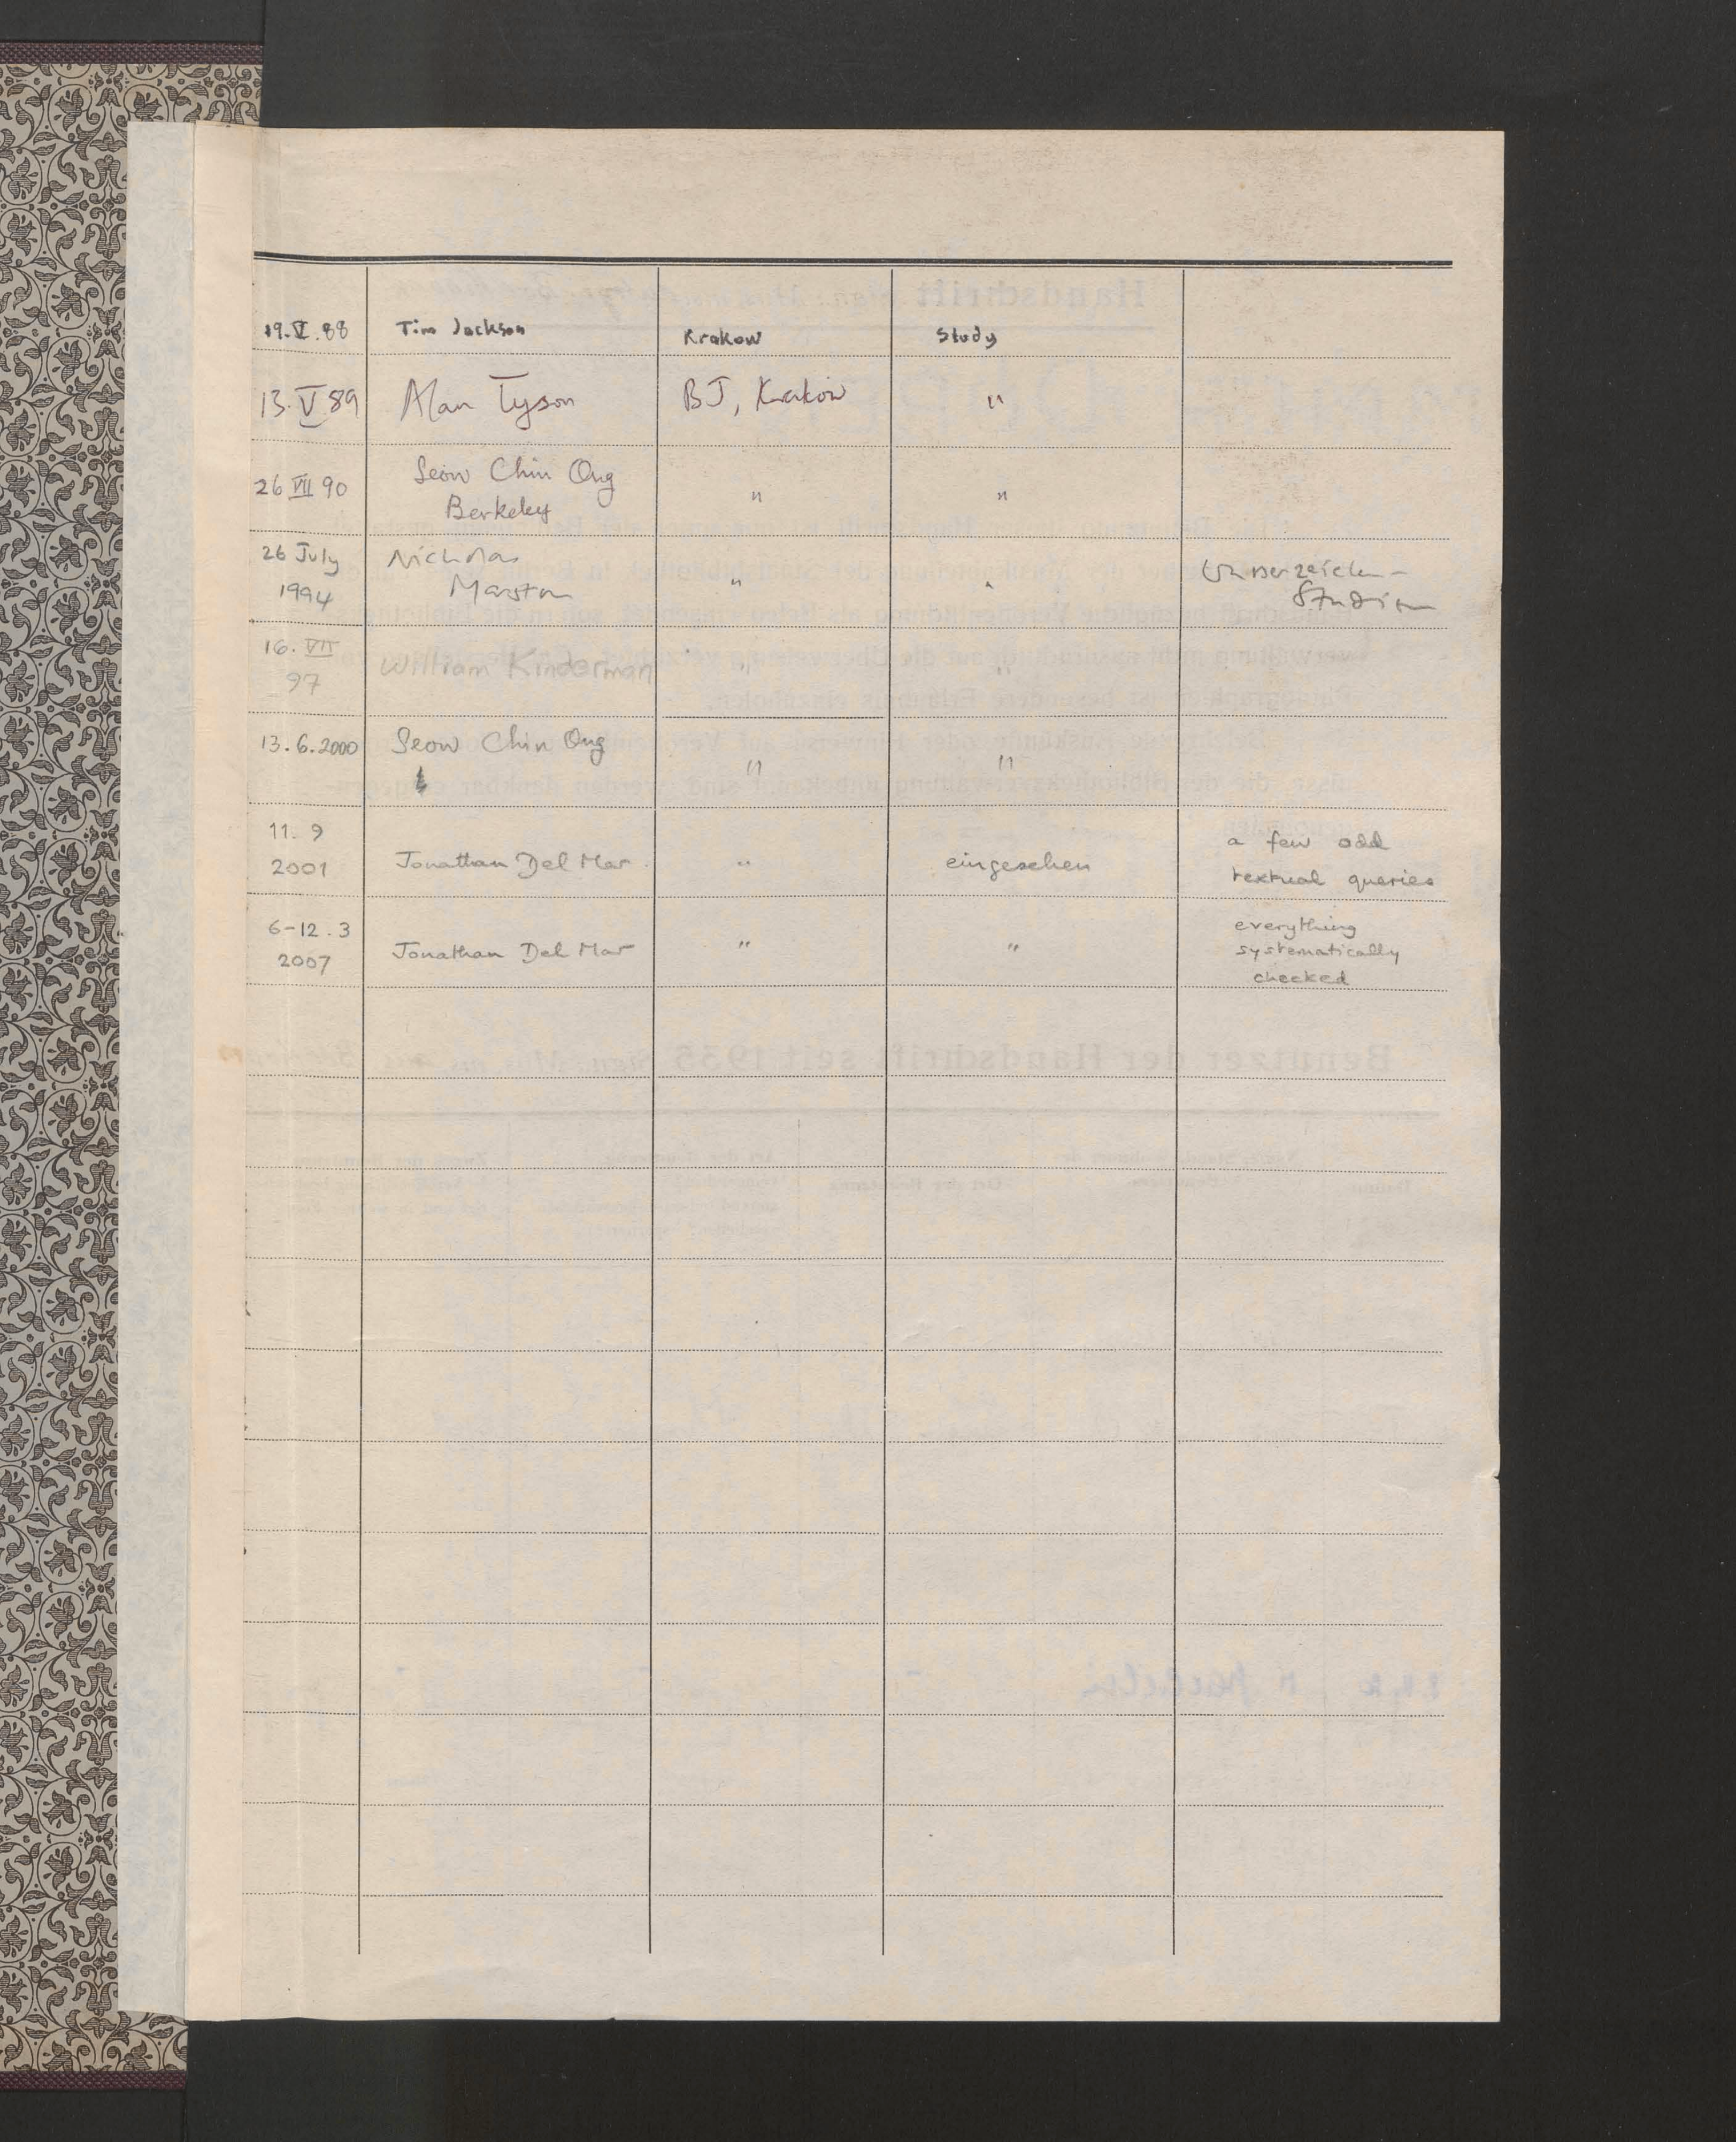 19.V.88 Tim Jackson Krakow Study
13.V 89 Alan Tyson BJ, Kraków "
26 VII 90 Seow Chin Ong " "
Berkeley
26 July Nicholas
1994 Marston " "
Studien
16. VII
97 William Kinderman " "
13.6.2000 Seow Chin Ong " "
11. 9
2001 Jonathan Del Mar. " eingesehen a few odd
textual queries
6-12.3
2007 Jonathan Del Mar " " everything
systematically
checked